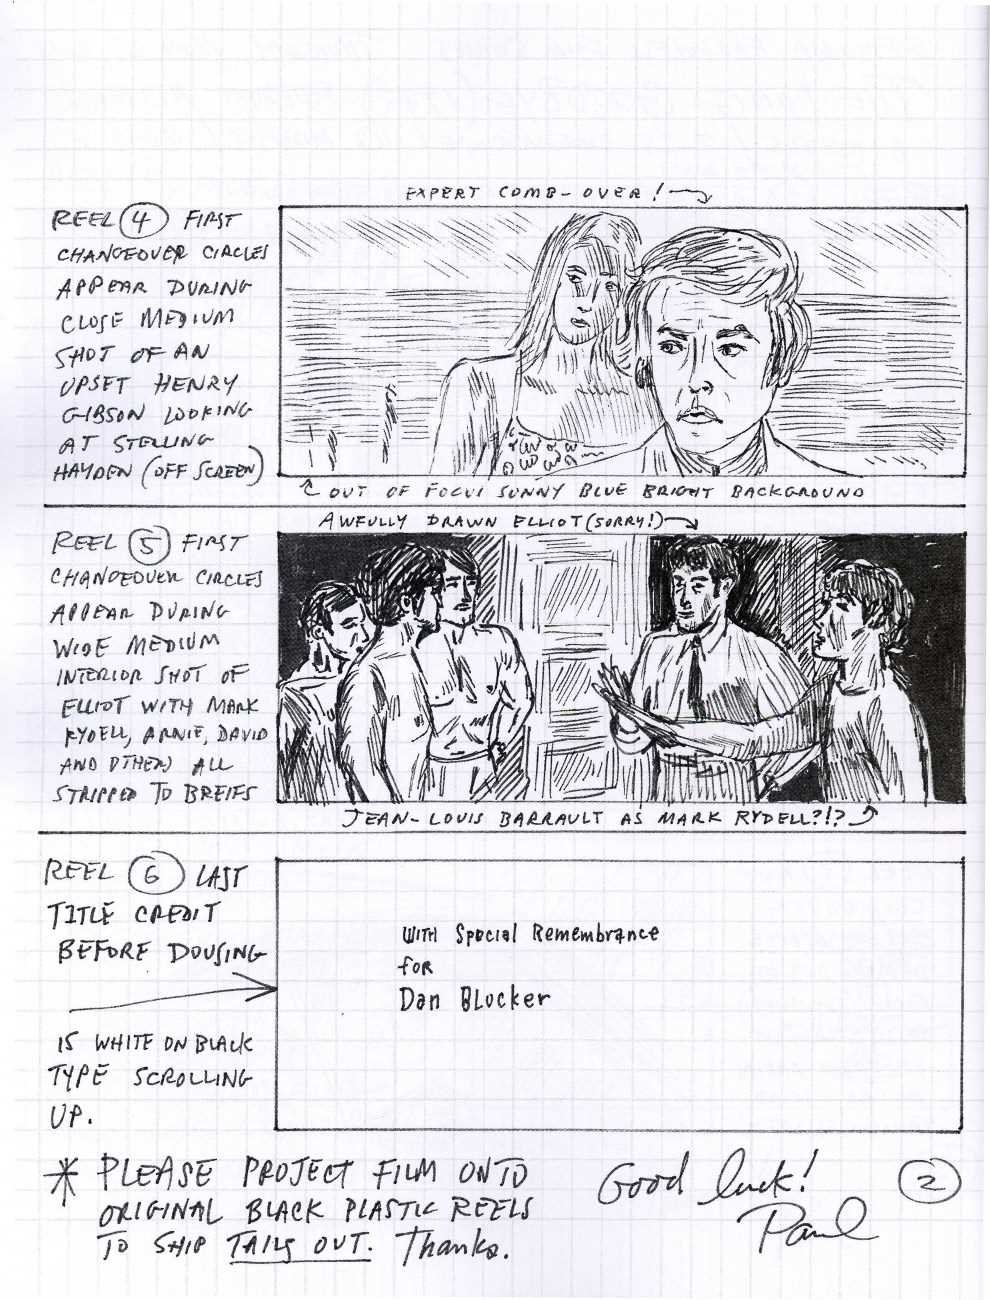 EXPERT COMB-OVER!
REEL 4 FIRST
CHANGEOVER CIRCLES
APPEAR DURING
CLOSE MEDIUM
SHOT OF AN
UPSET HENRY
GIBSON LOOKING
AT STERLING
HAYDEN (OFF SCREEN)
OUT OF FOCUS SUNNY BLUE BRIGHT BACKGROUND
AWFULLY DRAWN ELLIOT (SORRY!)
REEL 5 FIRST
CHANGEOVER CIRCLES
APPEAR DURING
WIDE MEDIUM
INTERIOR SHOT OF
ELLIOT WITH MARK
RYDELL, ARNIE, DAVID
AND OTHERS ALL
STRIPPED TO BREIFS
JEAN-LOUIS BARRAULT AS MARK RYDELL?!?
REEL 6 LAST
TITLE CREDIT
BEFORE DOUSING
IS WHITE ON BLACK
TYPE SCROLLING
UP.
WITH Special Remembrance
for
Dan BLocker
* PLEASE PROJECT FILM ONTO
ORIGINAL BLACK PLASTIC REELS
TO SHIP TAILS OUT. Thanks.
Good luck!
Paul
2